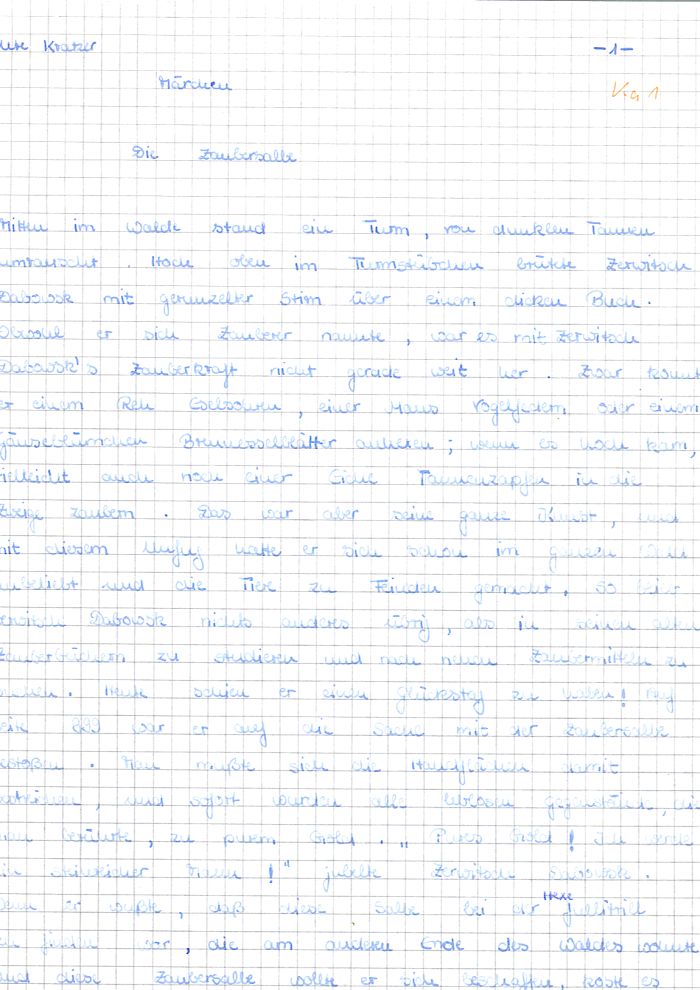 Kratzer -1-
Märchen Kra 1
Die Zaubersalbe
Mitten im Walde stand ein Turm, von dunklen Tannen
umrauscht. Hoch oben im Turmstübchen brütete Zerwitsch
Dabowsk mit gerunzelter Stirn über einem dicken Buch.
Obwohl er sich Zauberer nannte, war es mit Zerwitsch
Dabowsk's Zauberkraft nicht gerade weit her. Zwar konnt
er einem Reh Eselsohren, einer Maus Vogelfedern oder einem
Gänseblümchen Brennesselblätter anhexen; wenn es hoch kam,
vielleicht auch noch einer Eiche Tannenzapfen in die
Zweige zaubern. Das war aber seine ganze Kunst, und
mit diesem Unfug hatte er sich schon im ganzen
unbeliebt und die Tiere zu Feinden gemacht. So blieb
Zerwitsch Dabowsk nichts anderes übrig, als in seinen alten
Zauberbüchern zu studieren und nach neuen Zaubermitteln zu
suchen. Heute schien er einen Glückstag zu haben! Auf
Seite 899 war er auf die Sache mit der Zaubersalbe
gestoßen. Man mußte sich die Handflächen damit
und sofort wurden alle leblosen Gegenstände, die
man berührte, zu purem Gold. „Pures Gold! Ich werde
ein steinreicher Mann!" jubelte Zerwitsch Dabowsk.
Denn er wußte, daß diese Salbe bei der Hexe
zu finden war, die am anderen Ende des Waldes wohnte
und diese Zaubersalbe wollte er sich beschaffen, koste es